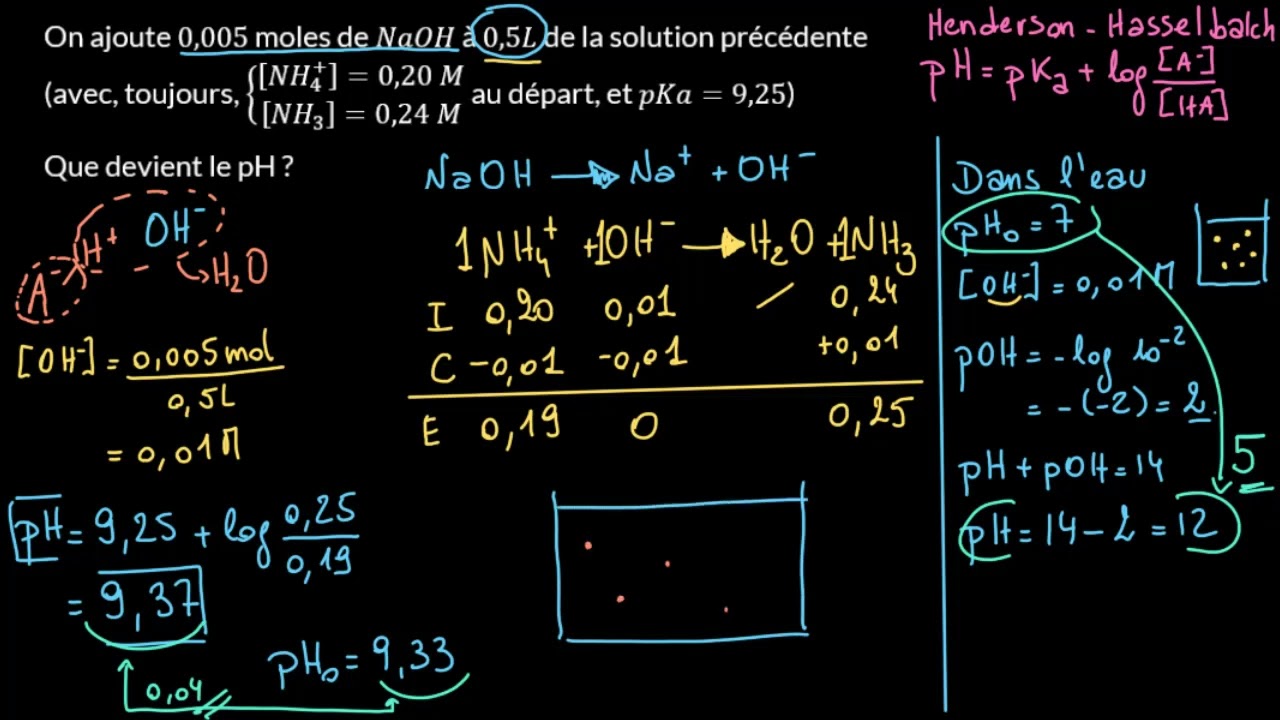 On ajoute 0,005 moles de NaOH à 0,5L de la solution précédente
(avec, toujours, {[NH₄⁺] = 0,20 M
[NH₃] = 0,24 M au départ, et pKa = 9,25)
Que devient le pH ?
Henderson - Hasselbalch
pH = pKa + log [A⁻]/[HA]
NaOH → Na⁺ + OH⁻
A⁻ H⁺ OH⁻
→ H₂O
1NH₄⁺ + 1OH⁻ → H₂O + 1NH₃
I 0,20 0,01 / 0,24
C -0,01 -0,01 +0,01
E 0,19 0 0,25
[OH⁻] = 0,005 mol / 0,5L
= 0,01 M
pH = 9,25 + log 0,25/0,19
= 9,37
pH₀ = 9,33
0,04
Dans l'eau
pH₀ = 7
[OH⁻] = 0,01 M
pOH = - log 10⁻²
= - (-2) = 2
pH + pOH = 14
5
pH = 14 - 2 = 12